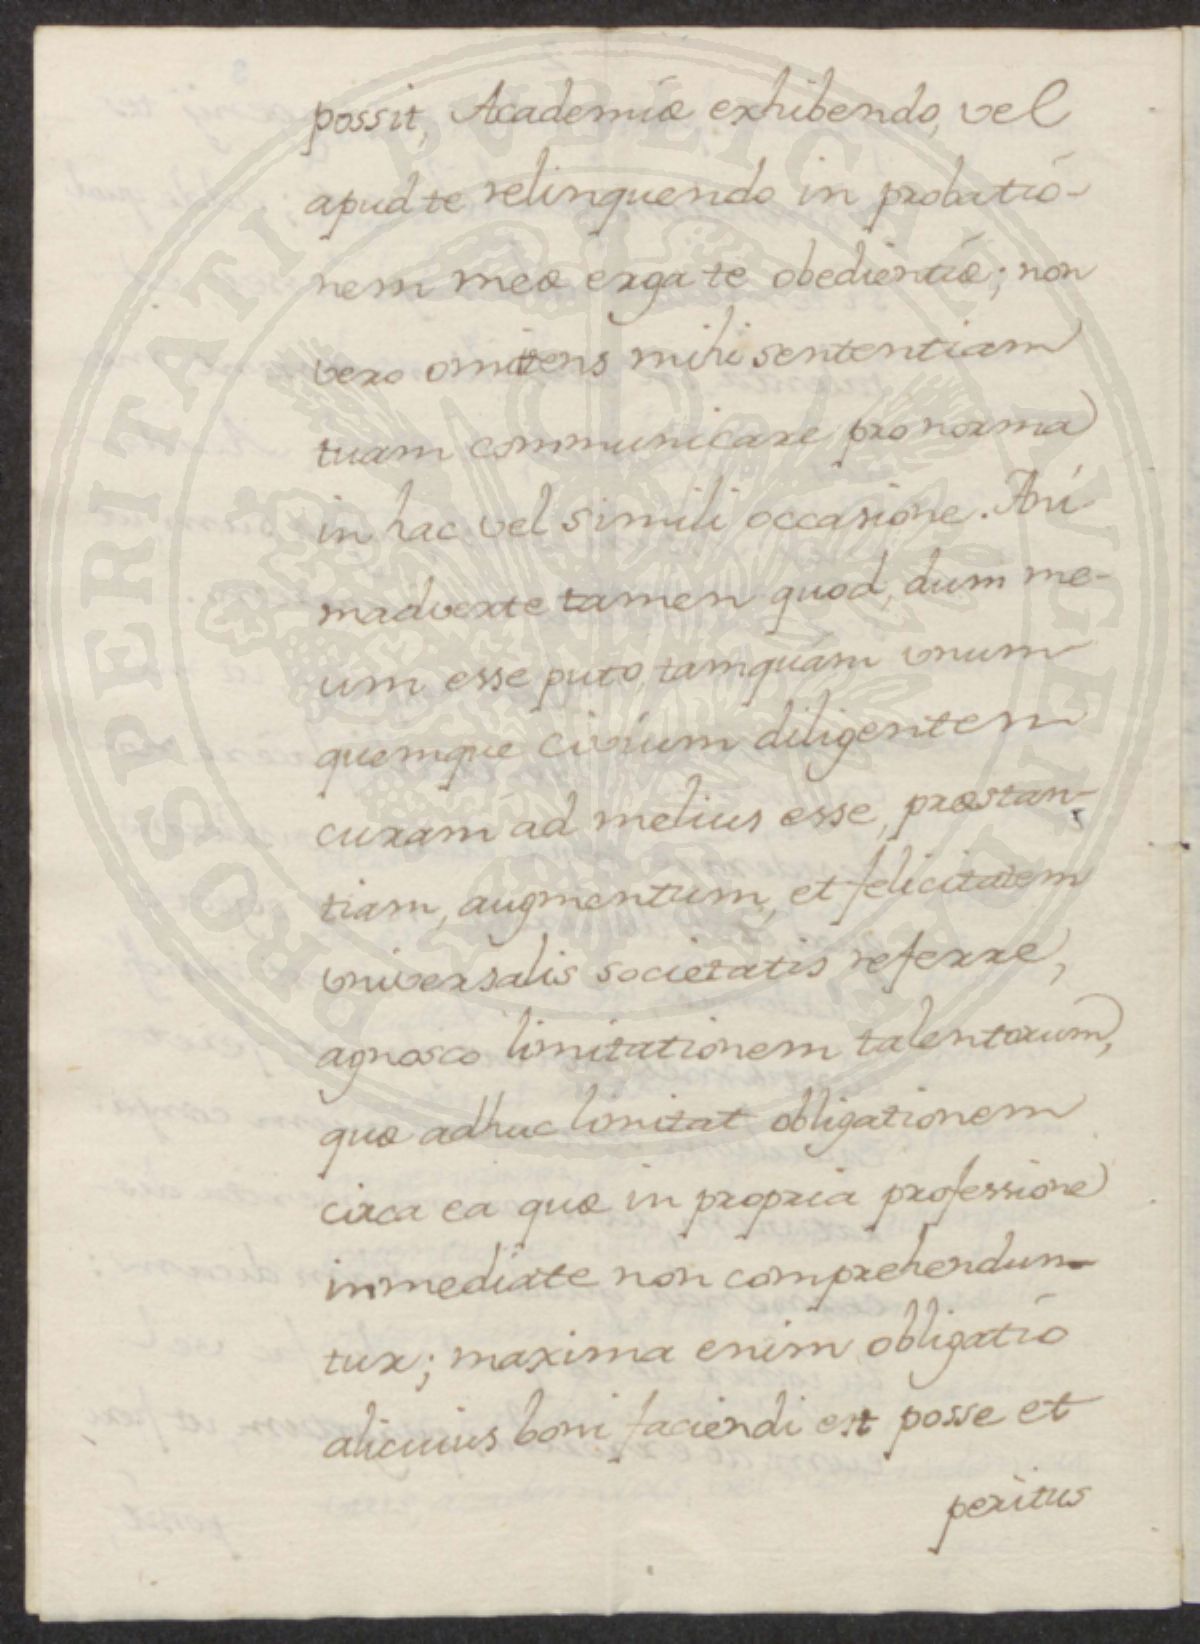 possit, Academiæ exhibendo, vel
apud te relinquendo in probatió-
nem meæ erga te obedientiæ; non
vero omittens mihi sententiam
tuam communicare pro norma
in hac vel simili occasione. Ani
madverte tamen quod, dum me-
um esse puto, tamquám unum
quemque civium diligentem
curam ad melius esse, præstan-
tiam, augmentum, et felicitatem
universalis societatis referre,
agnosco limitationem talentorum,
quæ adhuc limitat obligationem
circa ea quæ in propria professione
inmediate non comprehendun-
tur; maxima enim obligatió
alicuius boni faciendi est posse et
peritus
PROSPERITATI PUBLICAE AUGENDAE